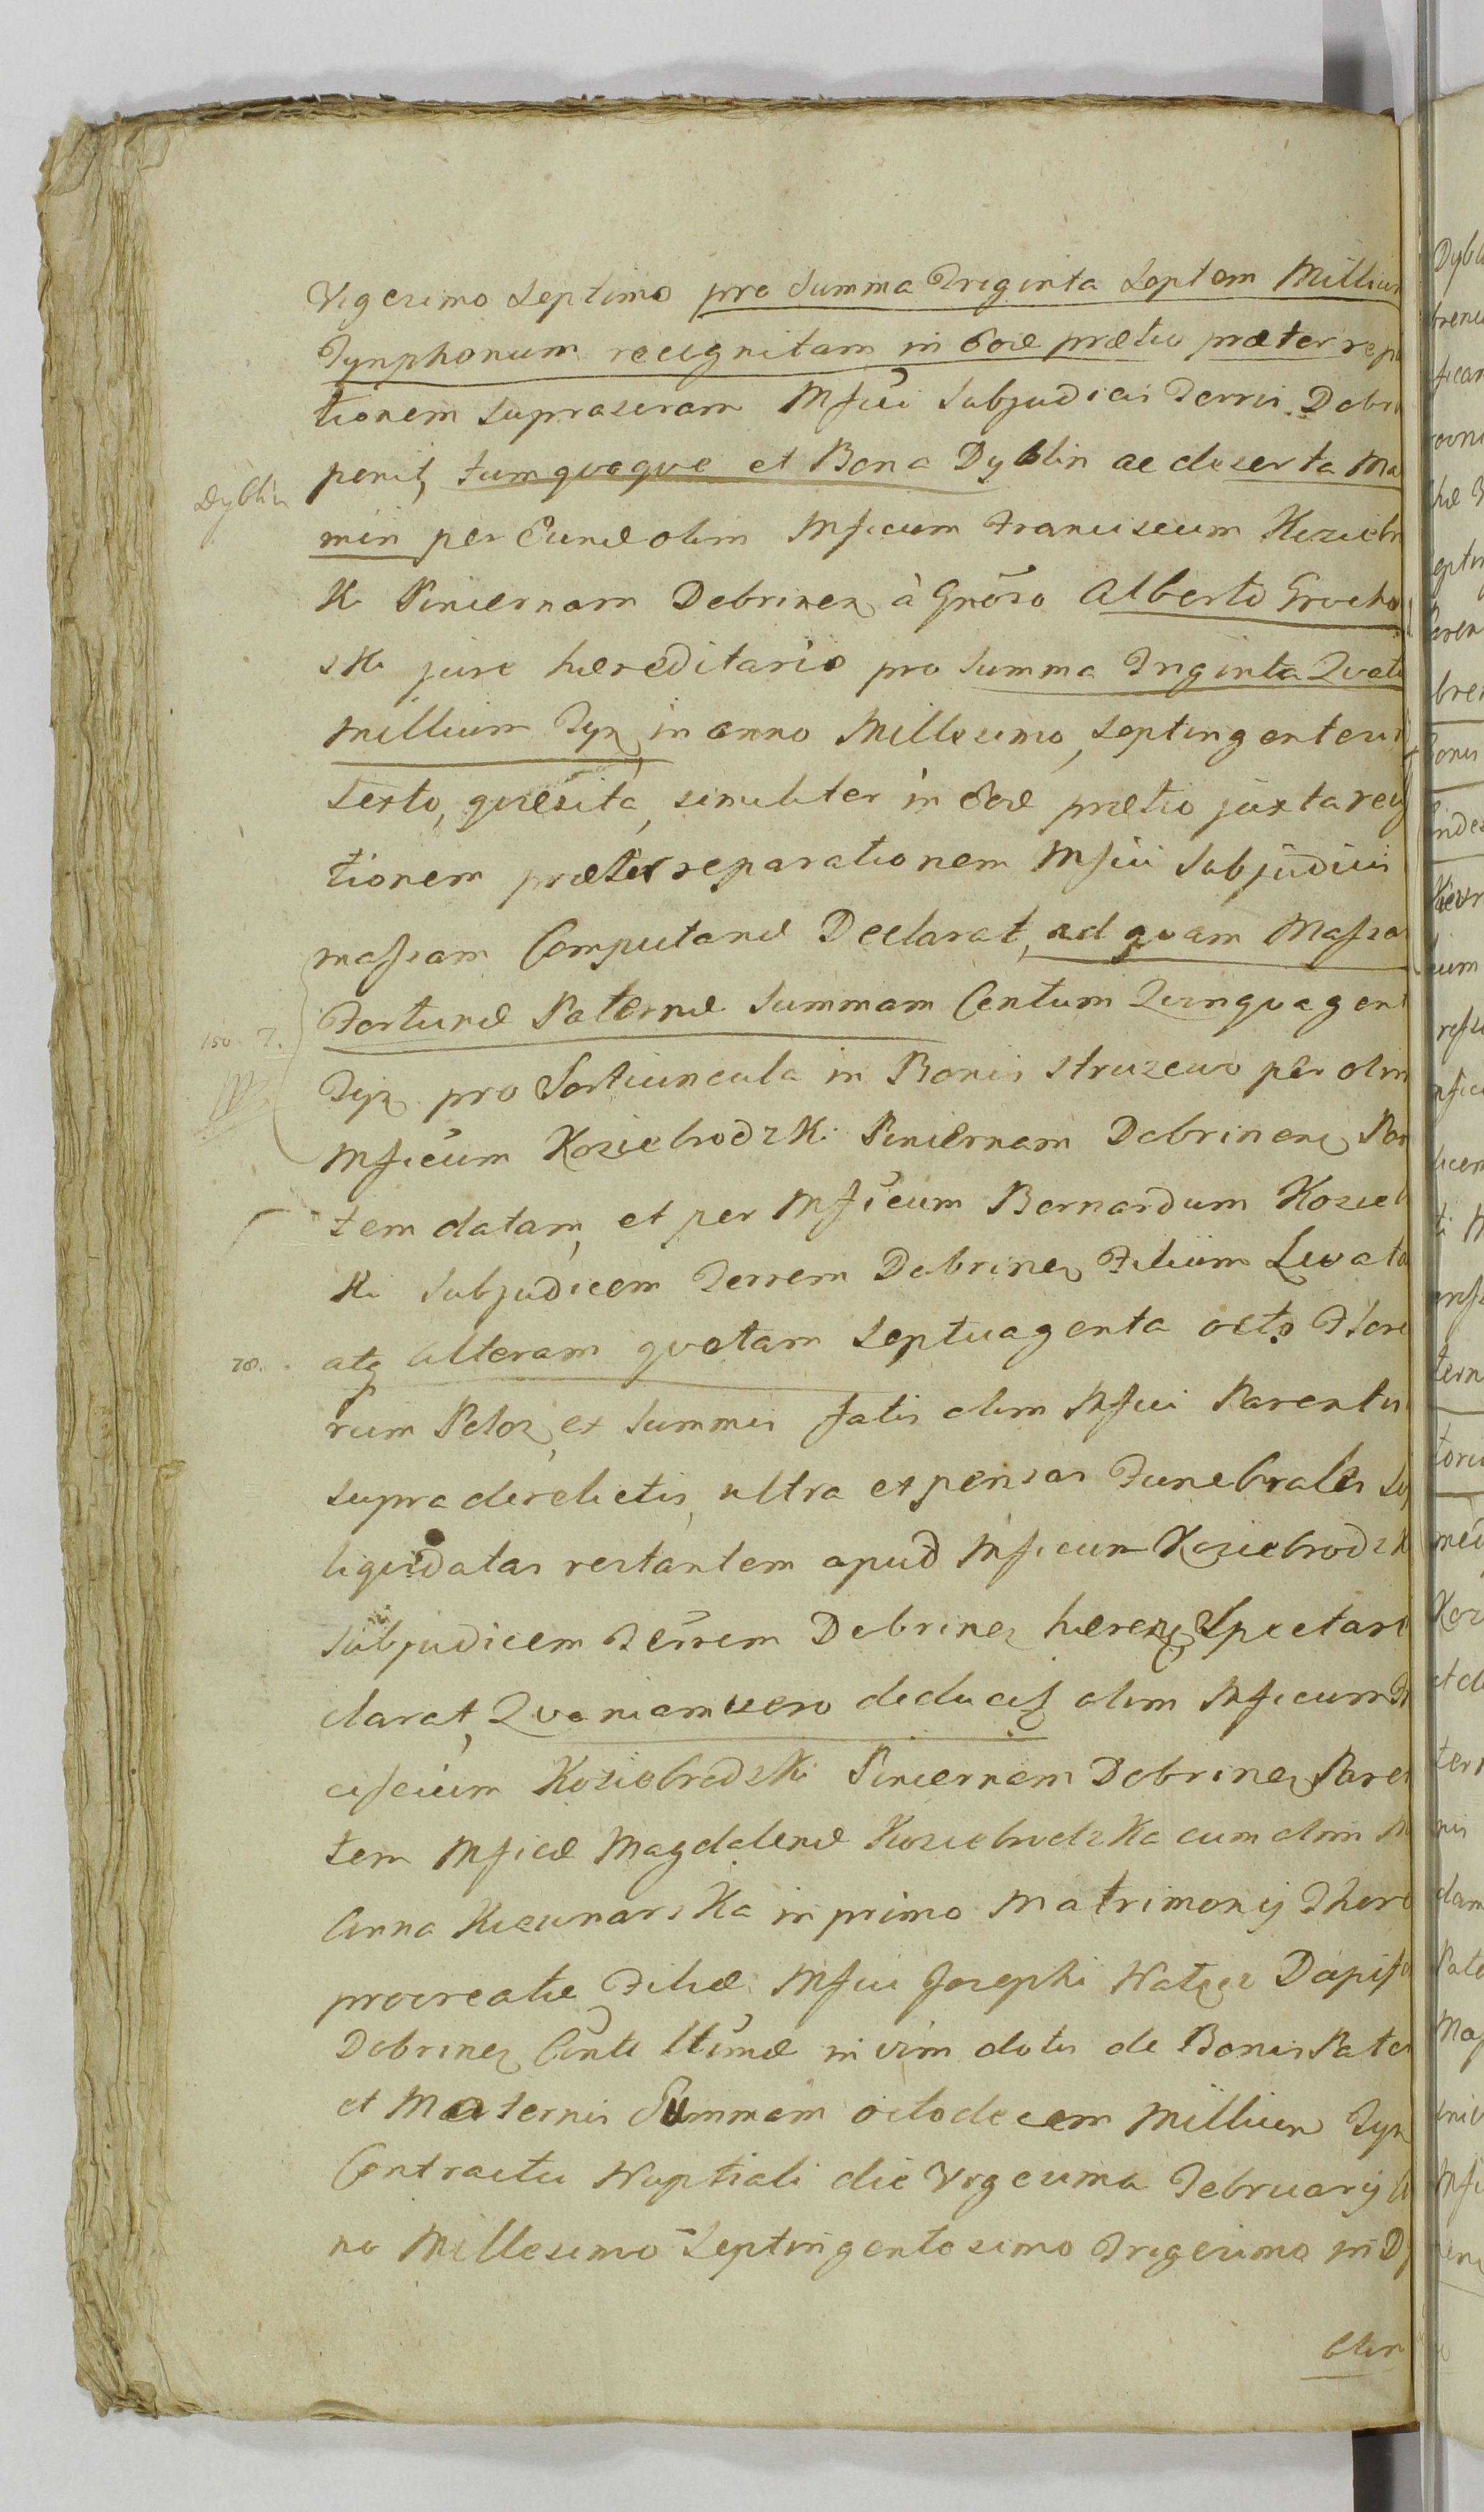 Vigesimo Septimo pro Summa Triginta Septem Millium
Tynphonum recognitam in eode prætio præter repa
tionem suprascram Mfici Subjudicis Terris Dobri
ponit, tum quoque et Bona Dyblin ac deserta Ma
Dyblin
min per Eundē olim Mficum Franciscum Kozieb
ki Pincernam Dobrinen à Gnoso Alberto Grocho
ski jure hæreditario pro Summa Triginta Quatu
Millium Tyn, in anno Millesimo, Septingentesi
Sexto, quæsita, similiter in eode prætio juxta rec
tionem præter reparationem Mfici Subjudicis
massam Computandē Declarat, ad quam Massa
Fortunæ Paternæ Summam Centum Quinquagent
150 T.
Tyn pro Sortiuncula in Bonis Struzewo per olim
Mficum Koziebrodzki Pincernam Dobrinen, Par
tem datam, et per Mficum Bernardum Kozieb
ki Subjudicem Terrem Dobrinen Filium Levata
atq alteram quotam Septuaginta octo Flore
78.
rum Polon, ex Summis fatis olim Mfici Parentis
supra derelictis, ultra expensas Funebrales
liquidatas restantem apud Mficum Koziebrodzk
Subjudicem Terrem Dobrinen hæren, Spectare
clarat, Quoniam vero deducit olim Mficum Fr
ciscum Koziebrodzki Pincernam Dobrinen Paren
tem Mficæ Magdalenæ Koziebrodzka cum olim M
Anna Kczunarska in primo Matrimonij Thoro
procreatæ Filiæ, Mfici Josephi Nałęcz Dapif
Dobrinen Conti Ltimæ in vim dotis de Bonis Pater
et Maternis Summam octodecem Millium Tyn
Contractu Nuptiali die Vigesima Februarij A
no Millesimo Septingentesimo Trigesimo in Dy
blin